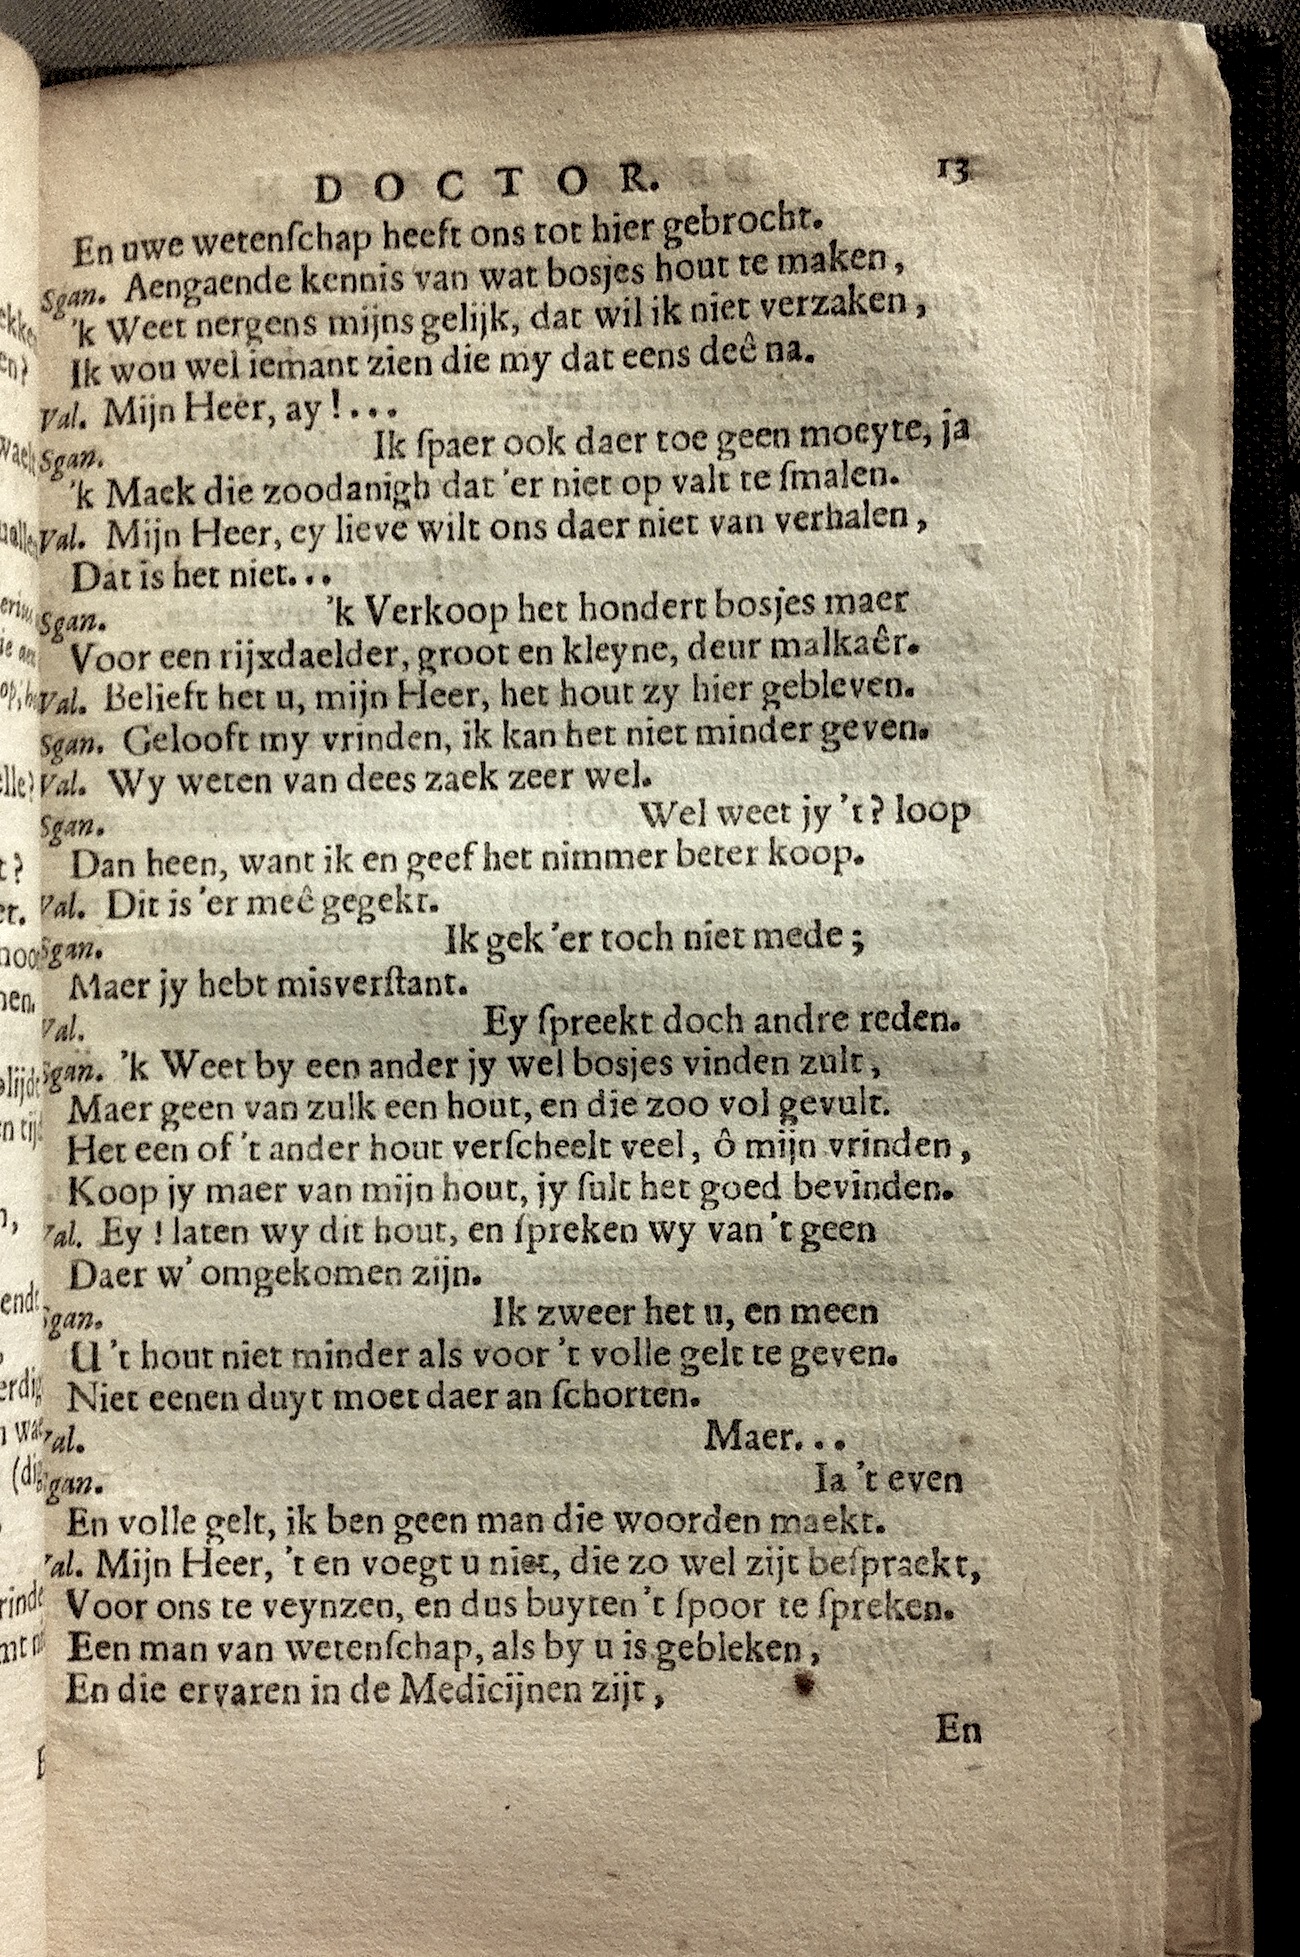 DOCTOR. 13
En uwe wetenſchap heeft ons tot hier gebrocht.
Sgan. Aengaende kennis van wat bosjes hout te maken,
'k Weet nergens mijns gelijk, dat wil ik niet verzaken,
Ik wou wel iemant zien die my dat eens deê na.
Val. Mijn Heer, ay!...
Sgan. Ik ſpaer ook daer toe geen moeyte, ja
'k Maek die zoodanigh dat 'er niet op valt te ſmalen.
Val. Mijn Heer, ey lieve wilt ons daer niet van verhalen,
Dat is het niet...
Sgan. 'k Verkoop het hondert bosjes maer
Voor een rijxdaelder, groot en kleyne, deur malkaêr.
Val. Belieft het u, mijn Heer, het hout zy hier gebleven.
Sgan. Gelooft my vrinden, ik kan het niet minder geven.
Val. Wy weten van dees zaek zeer wel.
Sgan. Wel weet jy 't? loop
Dan heen, want ik en geef het nimmer beter koop.
Val. Dit is 'er meê gegekt.
Sgan. Ik gek 'er toch niet mede;
Maer jy hebt misverſtant.
Val. Ey ſpreekt doch andre reden.
Sgan. 'k Weet by een ander jy wel bosjes vinden zult,
Maer geen van zulk een hout, en die zoo vol gevult.
Het een of 't ander hout verſcheelt veel, ô mijn vrinden,
Koop jy maer van mijn hout, jy ſult het goed bevinden.
Val. Ey! laten wy dit hout, en ſpreken wy van 't geen
Daer w' omgekomen zijn.
Sgan. Ik zweer het u, en meen
U 't hout niet minder als voor 't volle gelt te geven.
Niet eenen duyt moet daer an ſchorten.
Val. Maer...
Sgan. Ia 't even
En volle gelt, ik ben geen man die woorden maekt.
Val. Mijn Heer, 't en voegt u niet, die zo wel zijt beſpraekt,
Voor ons te veynzen, en dus buyten 't ſpoor te ſpreken.
Een man van wetenſchap, als by u is gebleken,
En die ervaren in de Medicijnen zijt,
En